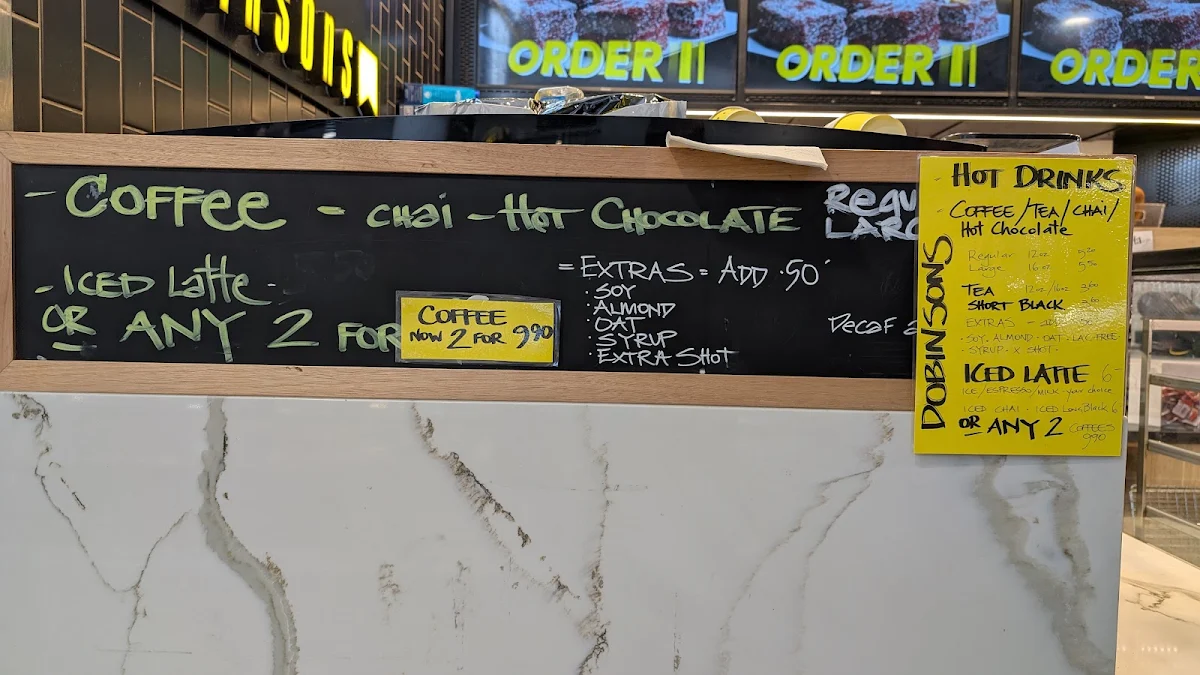 ORDER
ORDER
ORDER
- COFFee - CHai - HOT CHOCOLATE
- ICED Latte -
OR ANY 2 FOR
COFFEE
NOW 2 FOR 990
= EXTRAS = ADD .50
· SOY
· ALMOND
· OAT
· SYRUP
· EXTRA SHOT
DecaF
DOBINSONS
- HOT DRINKS
- COFFEE/TEA/CHAI/
Hot Chocolate
Regular 12oz
Large 16oz
TEA 12oz/16oz
SHORT BLACK
EXTRAS
· SOY · ALMOND · OAT · LAC-FREE
· SYRUP · X SHOT ·
ICED LATTE 6-
ICE/ESPRESSO/MILK - your choice
ICED CHAI - ICED Long Black 6
OR ANY 2 COFFEES
990